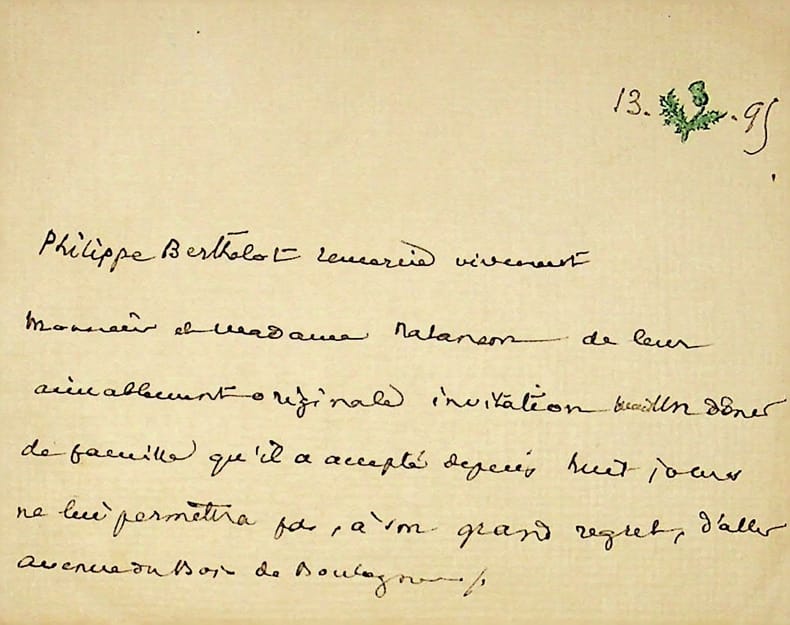 13. . 95
Philippe Berthelot remercie vivement
Monsieur et Madame Natanson de leur
aimablement originale invitation Un dîner
de famille qu'il a accepté depuis huit jours
ne lui permettra pas, à son grand regret, d'aller
avenue du Bois de Boulogne